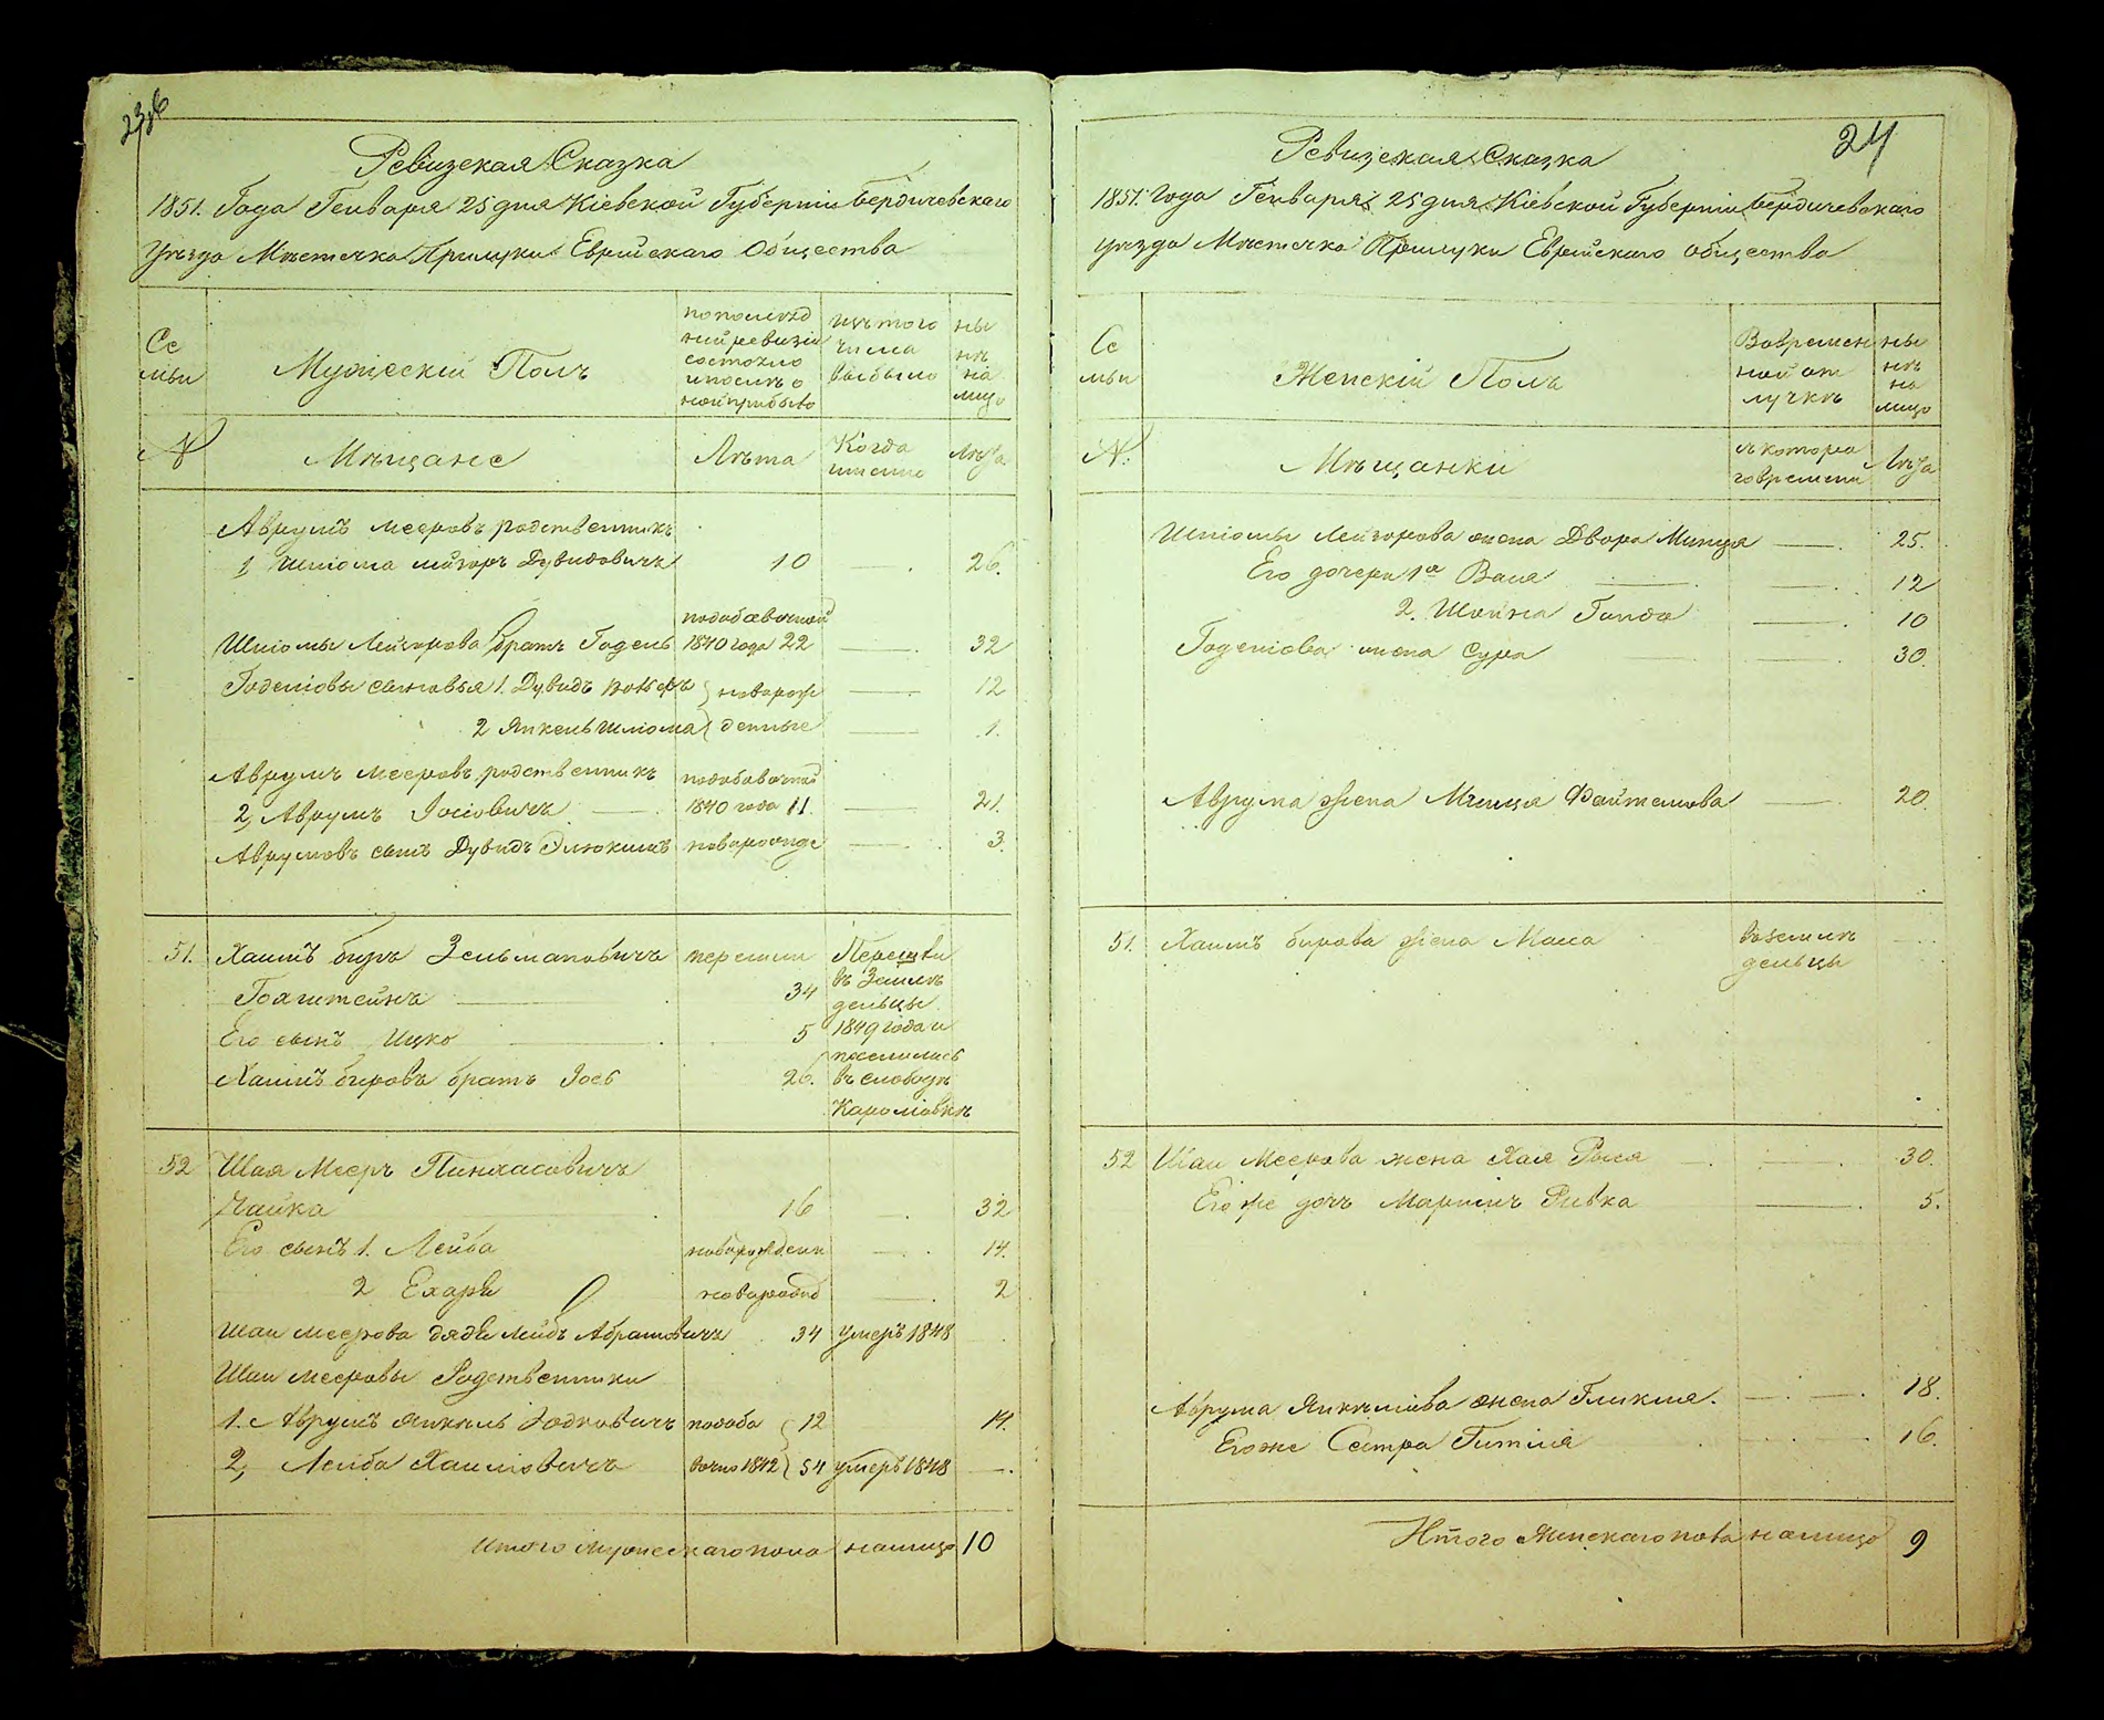 Ревизская Сказка
1851. Года Генваря 25 дня Кіевской Губерніи Бердичевскаго
уѣзда Мѣстечка Прилуки Еврейскаго Общества
Се
мьи
Мужескій Полъ
по послѣд
ней ревизіи
состояло
и послѣ о
ной прибыло
изъ того
числа
выбыло
ны
нѣ
на
лицо
№
Мѣщане
Лѣта
Когда
именно
Лѣта
Аврумъ Мееровъ родственникъ
1 Шліома Лейзоръ Дувидовичъ 10 26.
Шліомы Лейзорова братъ Годель
по добавочной
1840 года 22 32
Годеліовы сыновья 1. Дувидъ новорож 12
2 Янкель Шліома денные 1.
Аврумъ Мееровъ родственникъ
2, Аврумъ Іосіовичъ
по добавочной
1840 года 11. 21.
Аврумовъ сынъ Дувидъ Элюкимъ новорожде 3.
51. Хаимъ Беръ Зельмановичъ
Гольштейнъ 34
Его сынъ Ицко 5
Хаимъ Берова братъ Іось 26.
Перешли
въ Земле
дельцы
1849 года и
поселились
въ слободѣ
Каролювкѣ
52 Шая Мееръ Пинхасовичъ
Чайка 16 32
Его сынъ 1. Лейба новорожденн 14.
2 новорожд 2
Шаи Меерова дядя Лейбъ Абрамовичъ 34 умеръ 1848
Шаи Мееровы Родственники
1. Аврумъ Янкель по доба 12
2, Лейба Хаимовичъ вочно 1842 54 умеръ 1848
Итого мужескаго пола налицо 10
24
Ревизская Сказка
1851. Года Генваря 25 дня Кіевской Губерніи Бердичевскаго
уѣзда Мѣстечка Прилуки Еврейскаго общества
Се
мьи
Женскій Полъ
Во времен
ной от
лучкѣ
ны
нѣ
на
лицо
№:
Мѣщанки
съ котора
го времени
Лѣта
Шліомы Лейзорова жена Двора Минця 25.
Его дочери 1я Вася 12
2. Шейна Гинда 10
Годеліова жена Сура 30.
Аврума жена Минця Файтелиова 20.
51. Хаимъ Берова жена Маса
въ земле
дельцы
52 Шаи Меерова жена Хая Рыся 30.
Его же дочь Марьимъ Ривка 5.
Аврума Янкеліова жена Гликля. 18.
Его же Сестра Гитля 16.
Итого Женскаго пола налицо 9